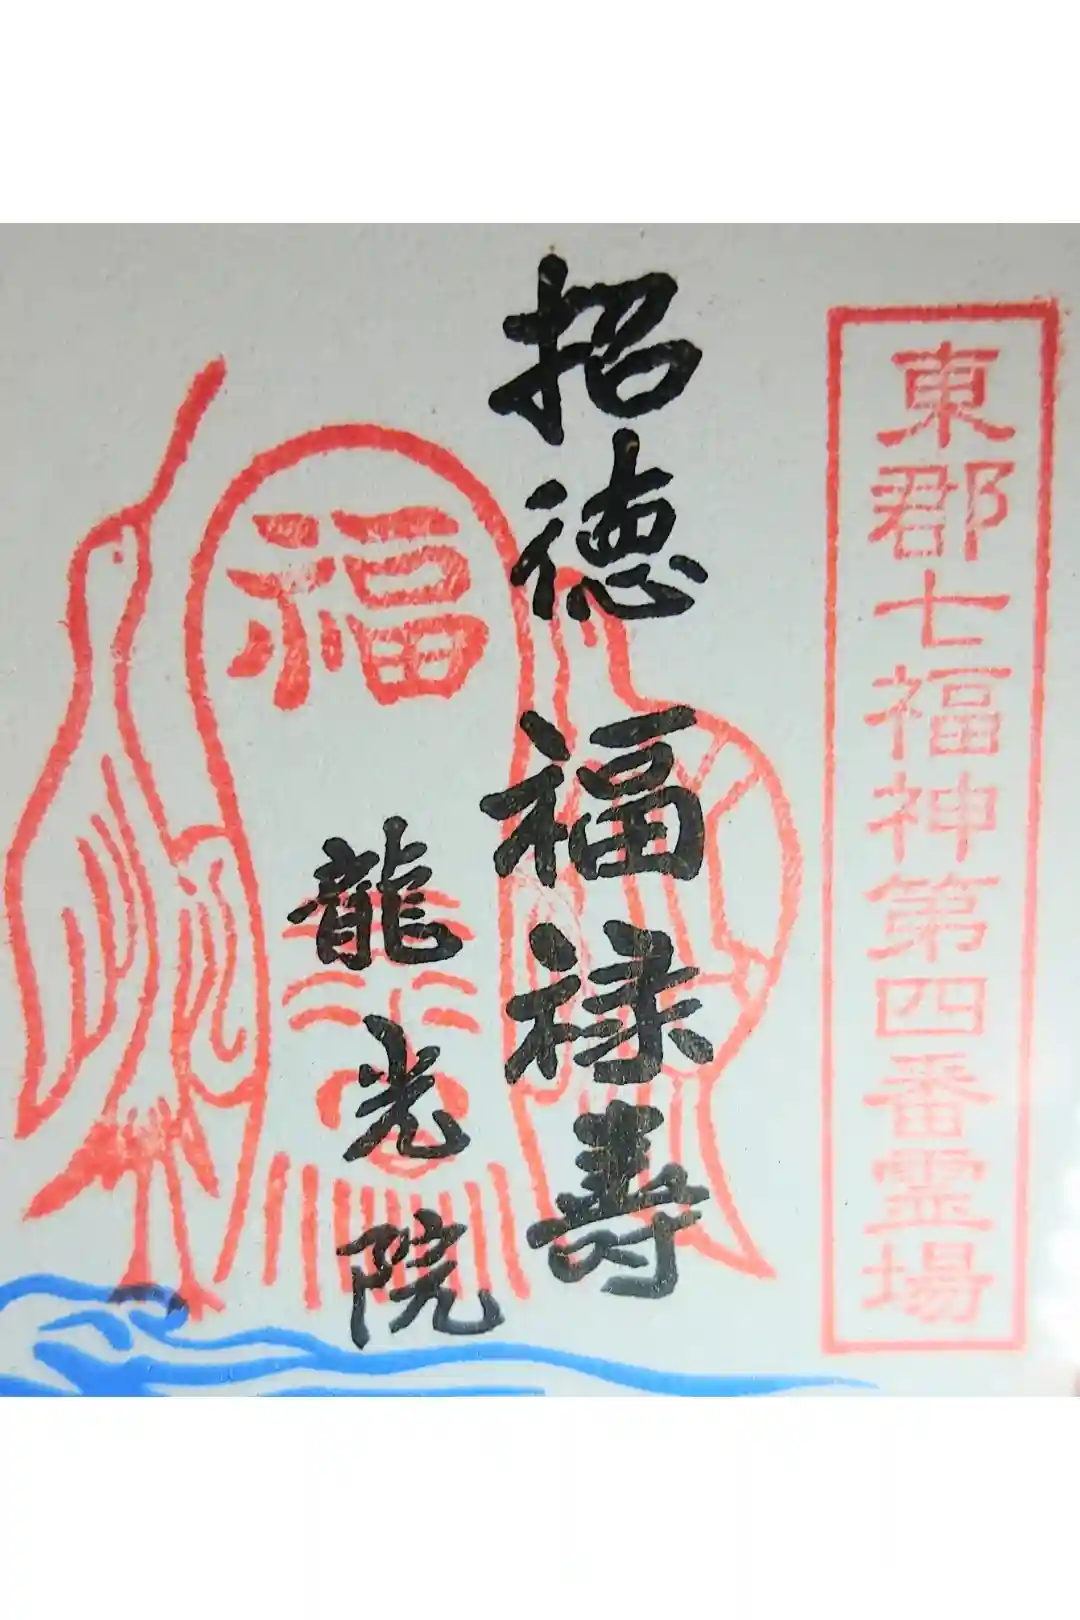 東郡七福神第四番霊場
招徳 福禄寿
龍光院
福